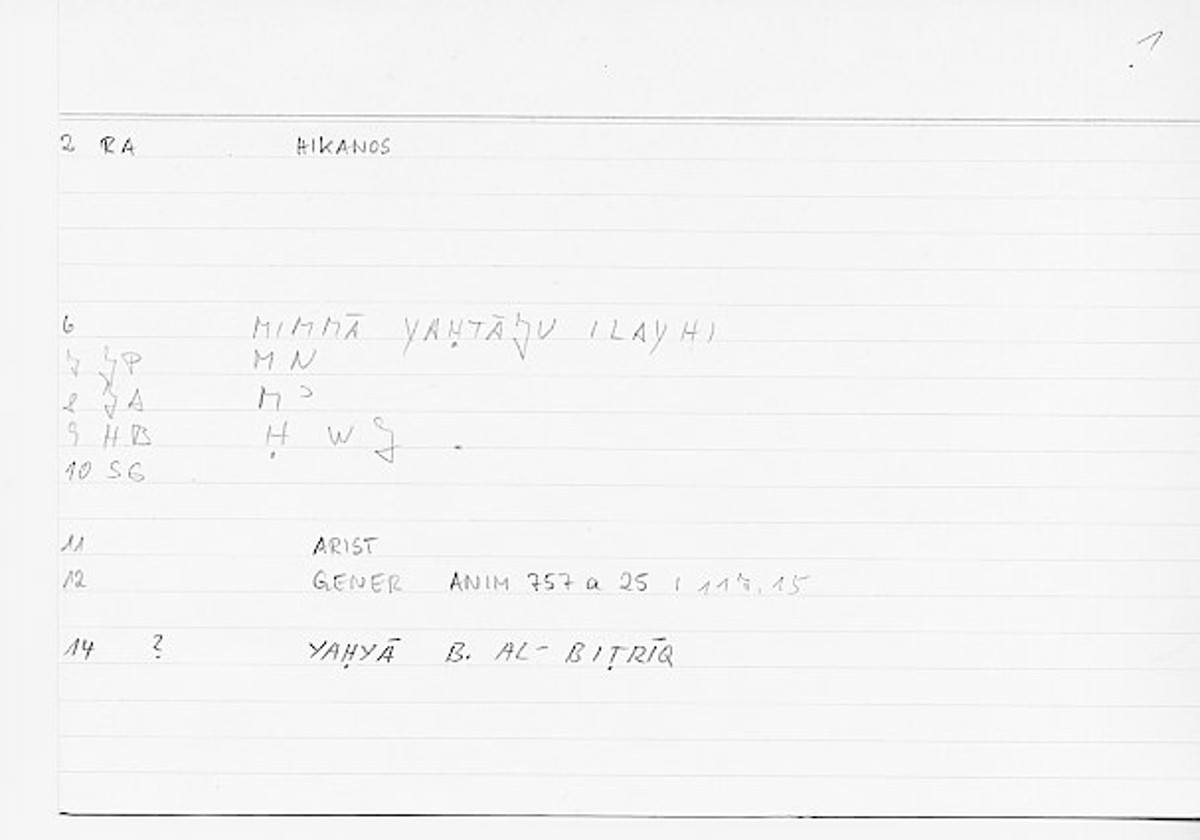 1
2 RA HIKANOS
6 MIMMĀ YAḤTĀǦU ILAYHI
7 ǦP M N
8 ǦA M ʾ
9 HB Ḥ W Ǧ .
10 SG
11 ARIST
12 GENER ANIM 757 a 25 ; 117.15
14 ? YAḤYĀ B. AL-BIṬRĪQ